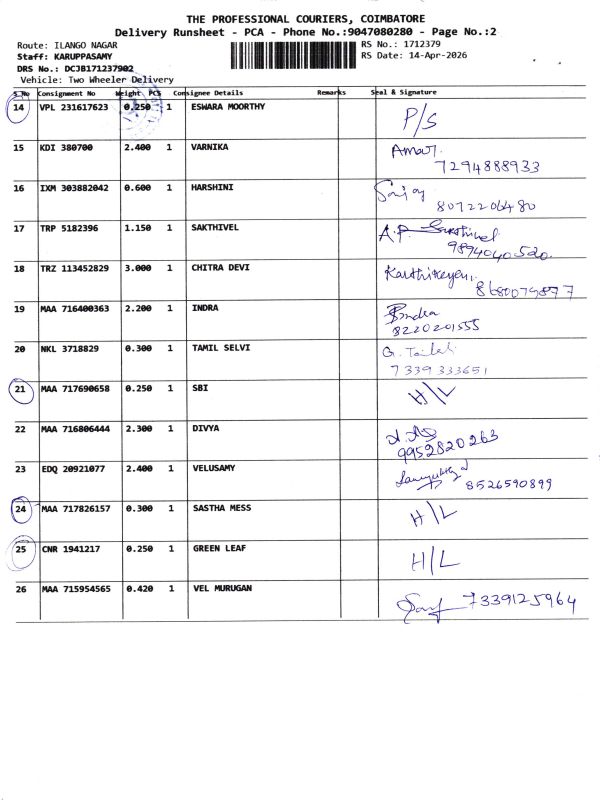 THE PROFESSIONAL COURIERS, COIMBATORE
Delivery Runsheet - PCA - Phone No.:9047080280 - Page No.:2
Route: ILANGO NAGAR RS No.: 1712379
Staff: KARUPPASAMY RS Date: 14-Apr-2026
DRS No.: DCJB171237902
Vehicle: Two Wheeler Delivery
S No Consignment No Weight PCS Consignee Details Remarks Seal & Signature
14 VPL 231617623 0.250 1 ESWARA MOORTHY P/S
15 KDI 380700 2.400 1 VARNIKA Amar.
7294888933
16 IXM 303882042 0.600 1 HARSHINI
8072206480
17 TRP 5182396 1.150 1 SAKTHIVEL A.P. Sakthivel
9894040520.
18 TRZ 113452829 3.000 1 CHITRA DEVI Karthikeyan.
8680079877
19 MAA 716400363 2.200 1 INDRA Indra
8220201555
20 NKL 3718829 0.300 1 TAMIL SELVI
7339333651
21 MAA 717690658 0.250 1 SBI H/L
22 MAA 716806444 2.300 1 DIVYA
9952820263
23 EDQ 20921077 2.400 1 VELUSAMY
8526590899
24 MAA 717826157 0.300 1 SASTHA MESS H/L
25 CNR 1941217 0.250 1 GREEN LEAF H/L
26 MAA 715954565 0.420 1 VEL MURUGAN 7339125964